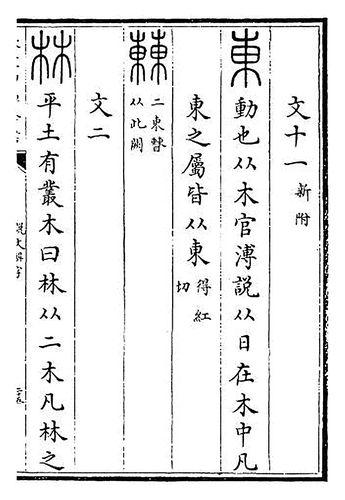 文十一 新附
東 動也从木官溥說从日在木中凡
東之屬皆从東 得紅切
𣡌 二東曹从此闕
文二
林 平土有叢木曰林从二木凡林之
說文解字